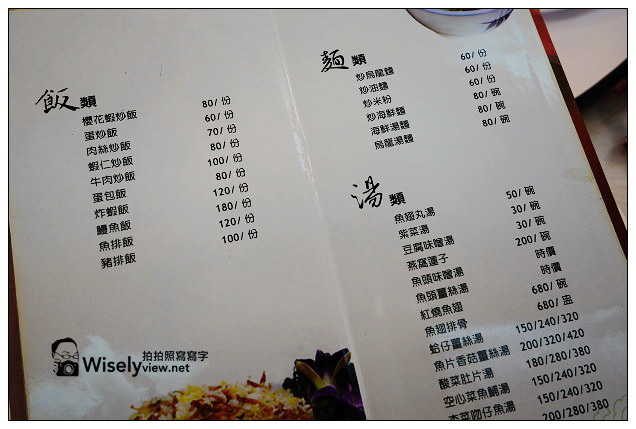 飯類
櫻花蝦炒飯 80/份
蛋炒飯 60/份
肉絲炒飯 70/份
蝦仁炒飯 80/份
牛肉炒飯 100/份
蛋包飯 80/份
炸蝦飯 120/份
鰻魚飯 180/份
魚排飯 120/份
豬排飯 100/份
麵類
炒烏龍麵 60/份
炒油麵 60/份
炒米粉 60/份
炒海鮮麵 80/碗
海鮮湯麵 80/碗
烏龍湯麵 80/碗
湯類
魚翅丸湯 50/碗
紫菜湯 30/碗
豆腐味噌湯 30/碗
燕窩蓮子 200/碗
魚頭味噌湯 時價
魚頭薑絲湯 時價
紅燒魚翅 680/碗
魚翅排骨 680/盅
蛤仔薑絲湯 150/240/320
魚片香菇薑絲湯 200/320/420
酸菜肚片湯 180/280/380
空心菜魚鯛湯 150/240/320
杏菜吻仔魚湯 150/240/320
200/280/380
拍拍照寫寫字
Wiselyview.net